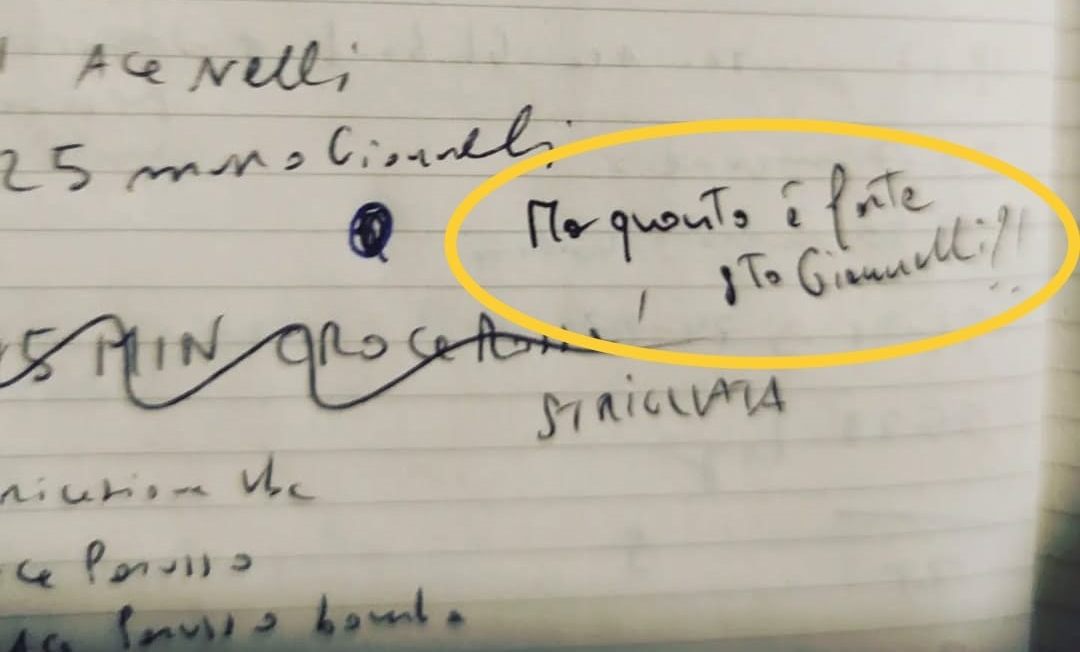 Ace Nelli
25 muro Giannelli
Ma quanto è forte
sto Giannelli?!!
5 MIN GROSSA
STRIGLIATA
Vbc
ce Perusso
Ace Perusso bomba